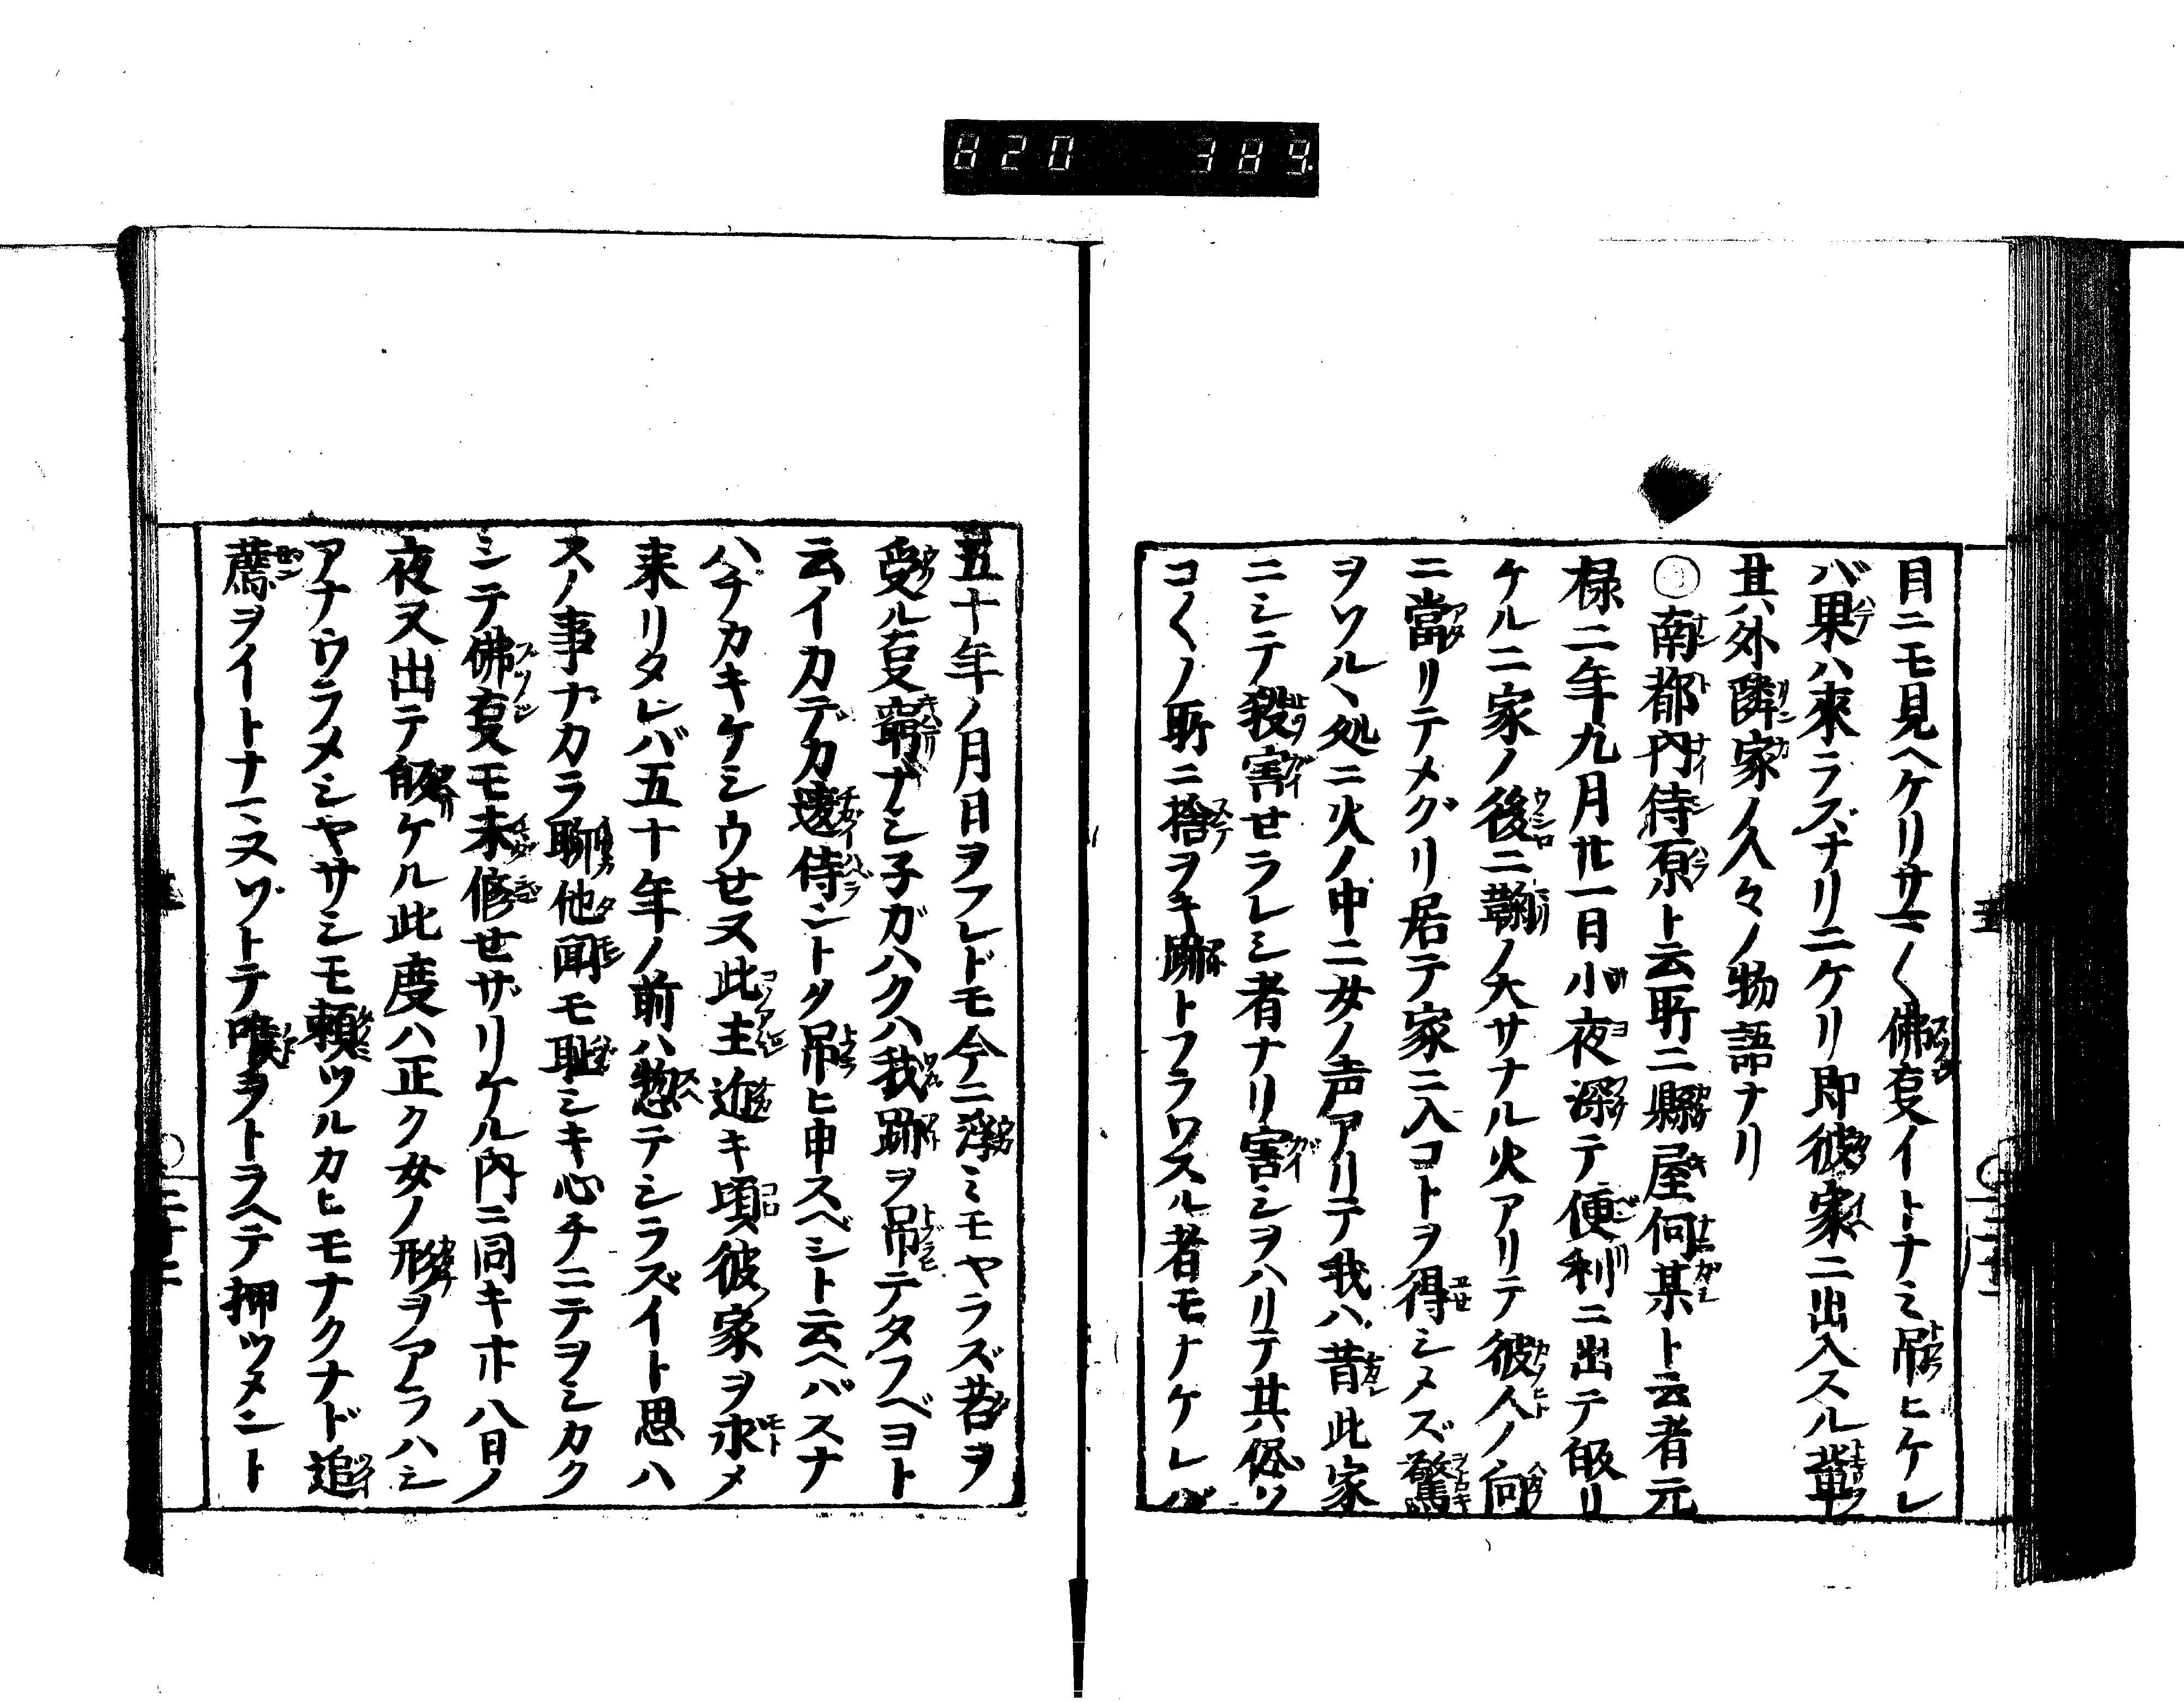 820 389.
目ニモ見ヘケリサマ〱佛叓イトナミ吊ヒケレ
バ果ハ來ラズナリニケリ即彼家ニ出入スル輩
其外隣家ノ人々ノ物語ナリ
○南都內侍原ト云所ニ縣屋何某ト云者元
禄二年九月廿一日小夜深テ便利ニ出テ皈リ
ケルニ家ノ後ニ鞠ノ大サナル火アリテ彼人ノ向
ニ當リテメグリ居テ家ニ入コトヲ得シメズ驚
ヲソルヽ処ニ火ノ中ニ女ノ声アリテ我ハ昔此家
ニシテ殺害せラレシ者ナリ害シヲハリテ其侭ソ
コ〱ノ所ニ捨ヲキ跡トフラワスル者モナケレバ
五十年ノ月日ヲフレドモ今ニ浮ミモヤラズ苦ヲ
受ル叓窮ナシ子ガハクハ我跡ヲ吊テタフベヨト
云イカデカ違侍ントク吊ヒ申スベシト云ヘバスナ
ハチカキケシウせヌ此主近キ頃彼家ヲ求メ
来リタレバ五十年ノ前ハ惣テシラズイト思ハ
スノ事ナカラ聊他聞モ耻シキ心チニテヲシカク
シテ佛叓モ未修せザリケル內ニ同キ廿八日ノ
夜又出テ皈ケル此度ハ正ク女ノ形ヲアラハシ
アナウラメシヤサシモ頼ツルカヒモナクナド追
薦ヲイトナマヌゾトテ喉ヲトラヘテ押ツメント